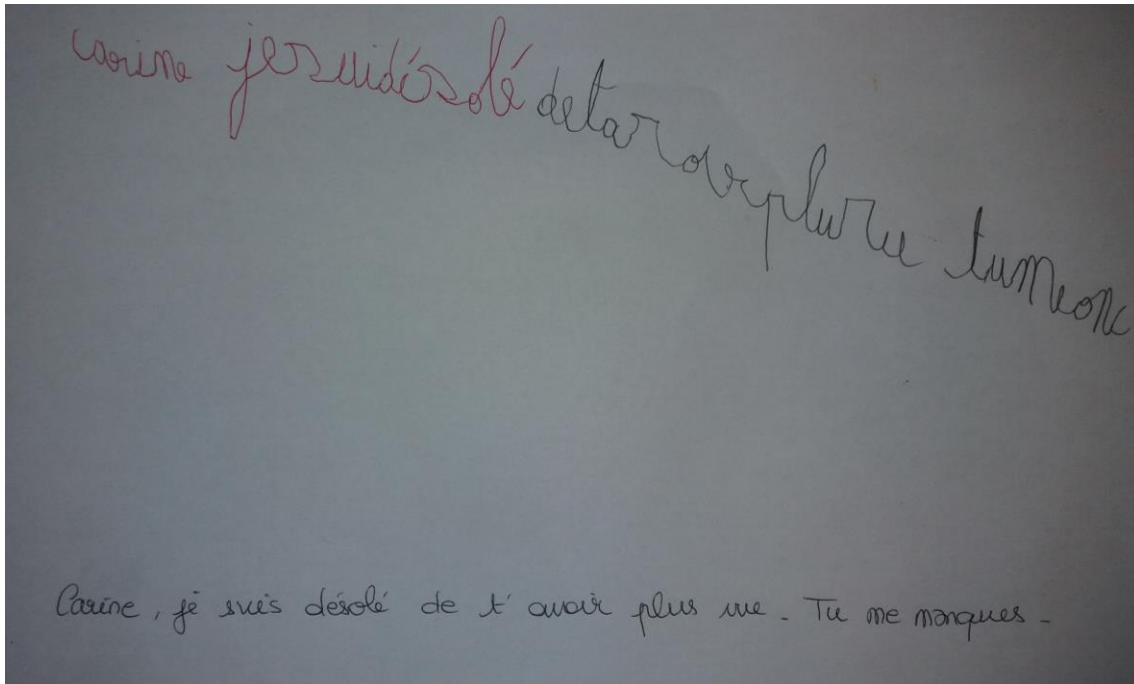 carine jesuidésolé detaroverpluvue tumemonc
Carine, je suis désolé de t'avoir plus vue. Tu me manques.